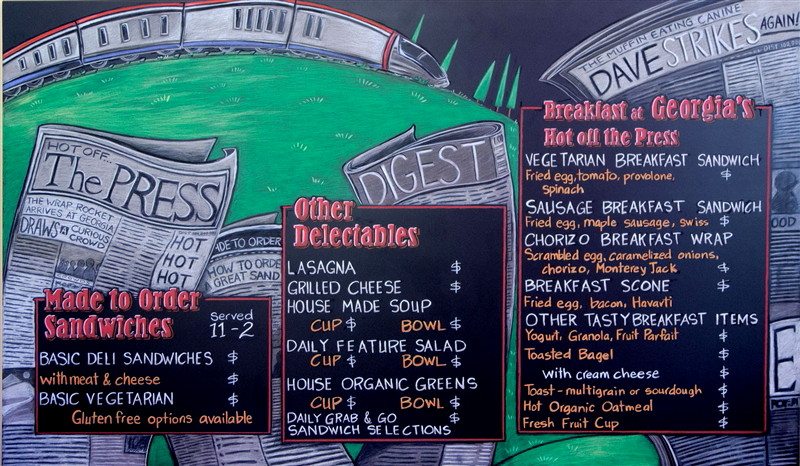 THE MUFFIN EATING CANINE
DAVE STRIKES AGAIN!
HOT OFF...
The PRESS
THE WRAP ROCKET
ARRIVES AT GEORGIA
DRAWS A CURIOUS
CROWD
HOT
HOT
HOT
DIGEST
DE TO ORDER
HOW TO ORDE
GREAT SAND
Made to Order
Sandwiches
Served
11-2
BASIC DELI SANDWICHES $
with meat & cheese $
BASIC VEGETARIAN $
Gluten free options available
Other
Delectables
LASAGNA $
GRILLED CHEESE $
HOUSE MADE SOUP
CUP $ BOWL $
DAILY FEATURE SALAD
CUP $ BOWL $
HOUSE ORGANIC GREENS
CUP $ BOWL $
DAILY GRAB & GO $
SANDWICH SELECTIONS
Breakfast at Georgia's
Hot off the Press
VEGETARIAN BREAKFAST SANDWICH
Fried egg, tomato, provolone, $
spinach
SAUSAGE BREAKFAST SANDWICH
Fried egg, maple sausage, swiss $
CHORIZO BREAKFAST WRAP
Scrambled egg, caramelized onions,
chorizo, Monterey Jack $
BREAKFAST SCONE $
Fried egg, bacon, Havarti
OTHER TASTY BREAKFAST ITEMS
Yogurt, Granola, Fruit Parfait $
Toasted Bagel $
with cream cheese $
Toast - multigrain or sourdough $
Hot Organic Oatmeal $
Fresh Fruit Cup $
E